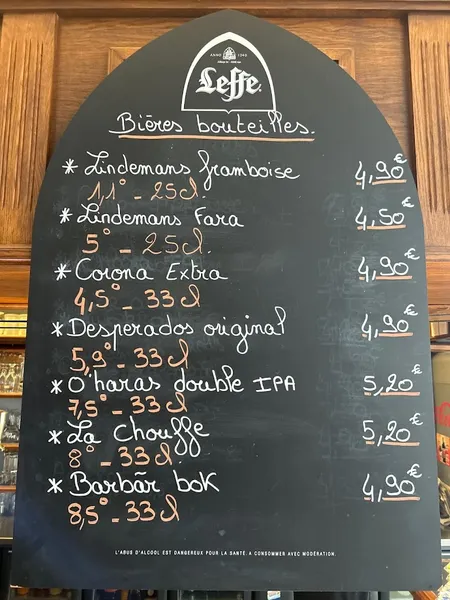 ANNO 1240
Leffe.
Bières bouteilles.
* Lindemans framboise 4,90€
1,1° - 25cl
* Lindemans Fara 4,50€
5° - 25cl.
* Corona Extra 4,90€
4,5° - 33cl
* Desperados original 4,90€
5,9° - 33cl
* O'haras double IPA 5,20€
7,5° - 33cl
* La Chouffe 5,20€
8° - 33cl
* Barbãr bok 4,90€
8,5° - 33cl
L'ABUS D'ALCOOL EST DANGEREUX POUR LA SANTÉ. A CONSOMMER AVEC MODÉRATION.